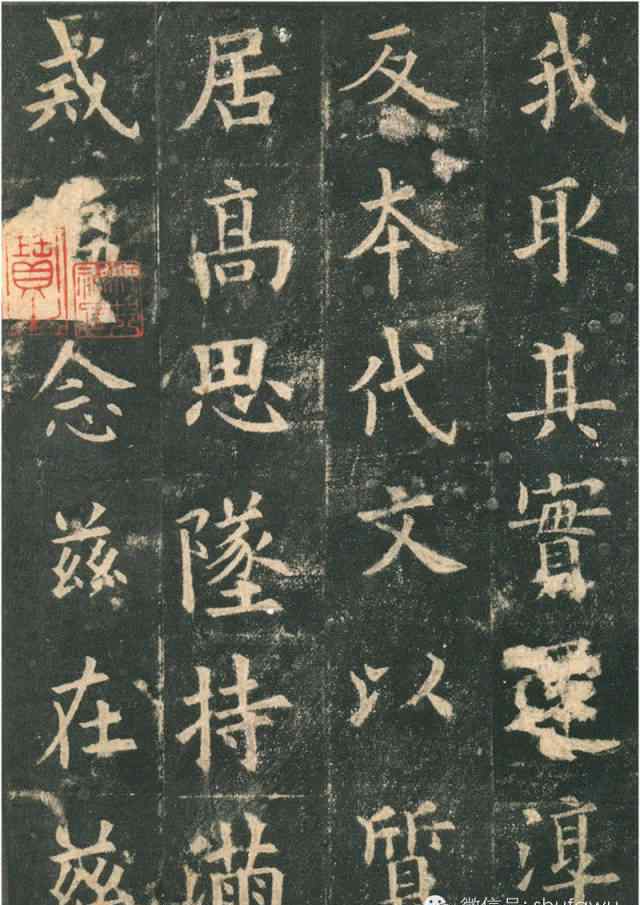 我取其實還淳
反本代文以質
居高思墜持滿
戒溢念茲在茲
微信号: shufawu